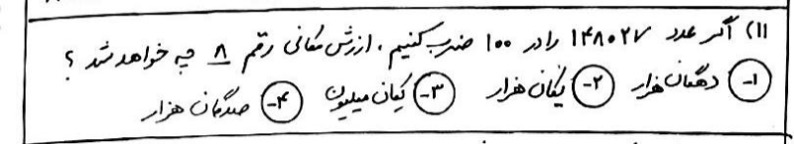 ۱۱) اگر عدد ۱۴۸۰۲۷ را در ۱۰۰ ضرب کنیم، ارزش مکانی رقم ۸ چه خواهد شد؟
۱- دهگان هزار ۲- یکان هزار ۳- یکان میلیون ۴- صدگان هزار